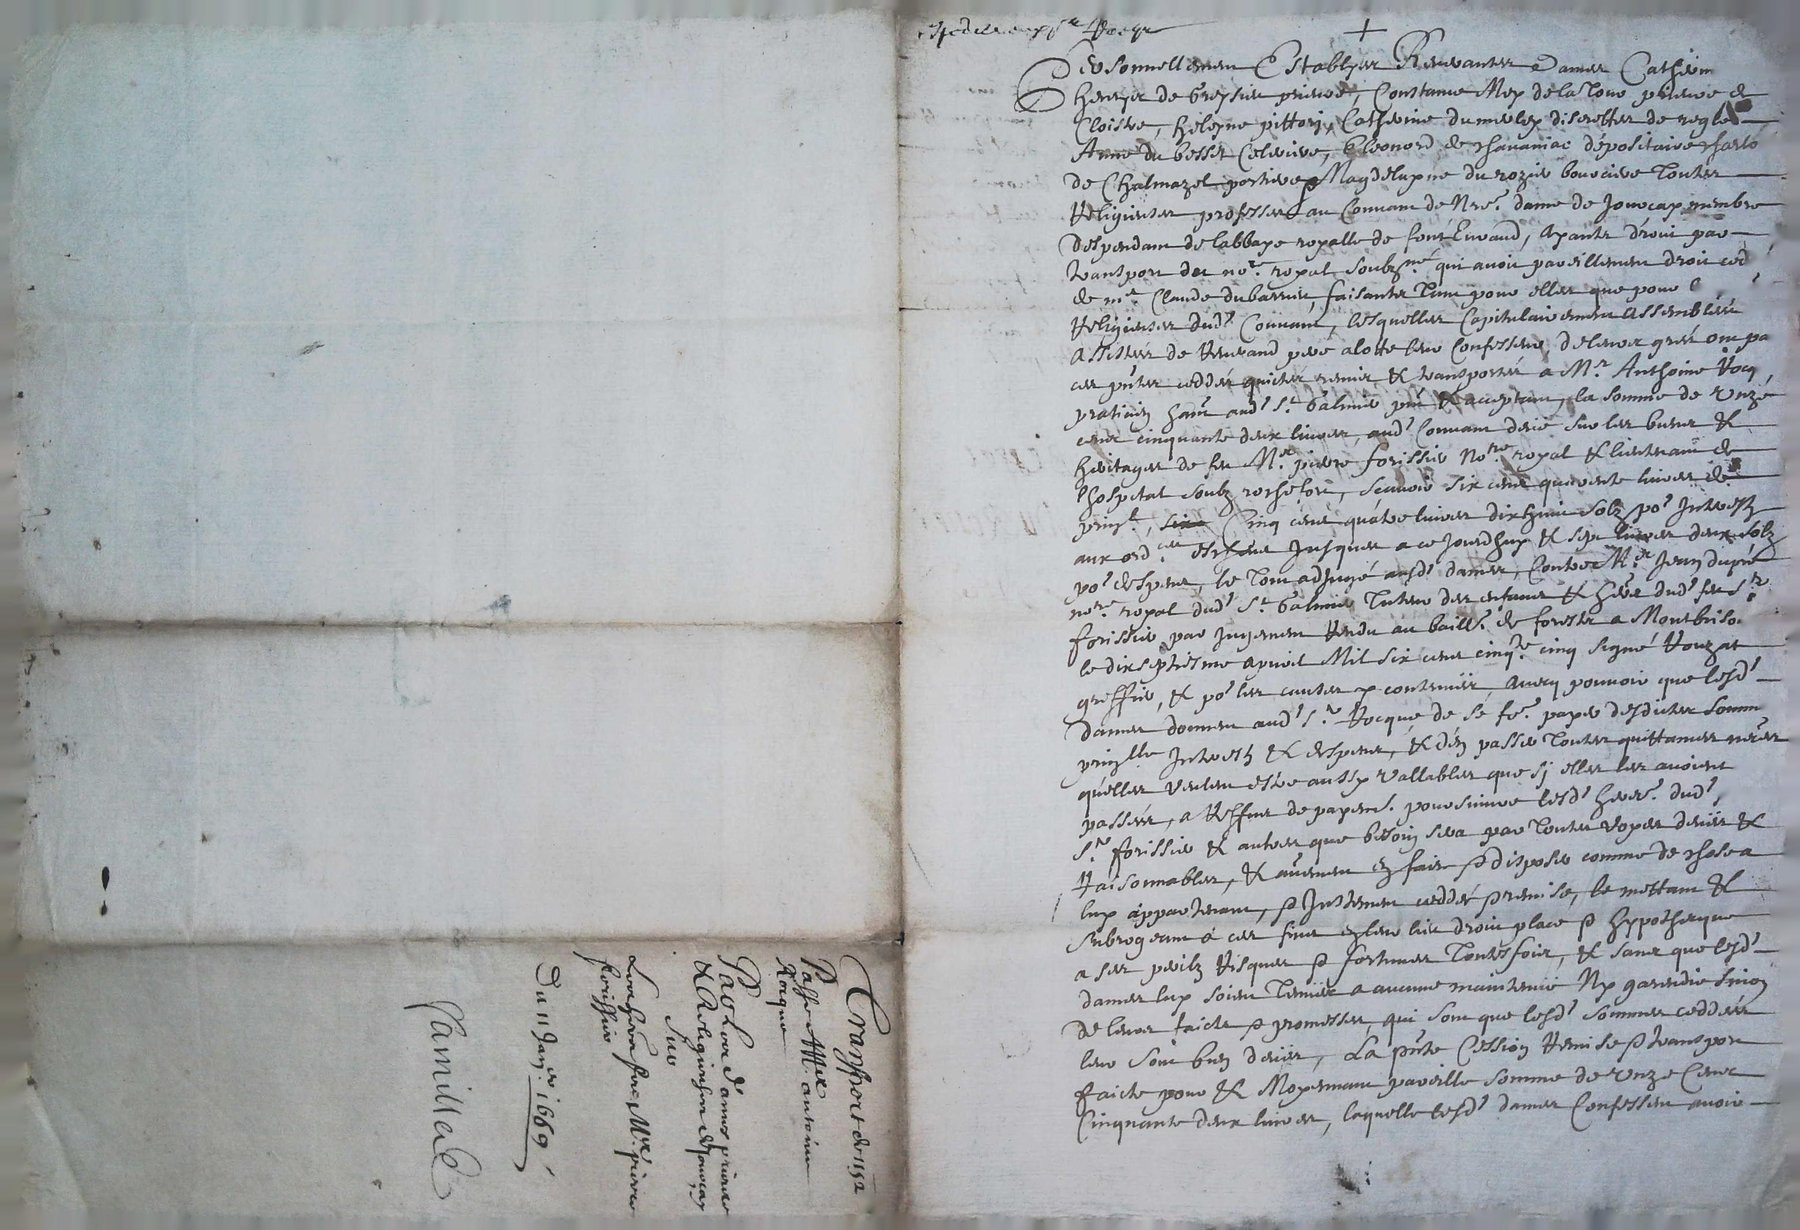 +
Personnellemen Establyes Reverantes dames Catherin
henrye de Greysieu prieure, Constance Mey de la Tour prieure de
Cloistre, heleyne pittory, Catherine dumerley discrettes de regle
Anne du besset Celeriere, Eleonord de chavaniac dépositaire charlo
de Chalmazel portiere & Magdeleyne du rozier boursiere Toutes
Religieuses professes au Convant de Nre. dame de Jourcay membre
despendant de labbaye royalle de font Evraud, ayants droict par
transport du nore. royal soubzné qui avoit pareillement droit ced
de me. Claude dubarrieu, faisantes Tant pour elles que pour l
Religieuses dudt Convant, lesquelles Capitulairement assemblées
assistées de Reverand pere alotte leur Confesseur, de leur gré ont pa
ces pntes ceddé quicté remis & transporté a Mr. Anthoine Rocq
praticien hant audt St Galmier pnt & acceptant, la somme de Unze
cent cinquante deux livres, audt Convant deue sur les biens &
heritages de feu Me. pierre forissier Nore royal & lieutenant de
lhospital soubz rochefort, scavoir six cent quarante livres de
prinpl, Cinq cent quatre livres dix huit solz po. Interestz
aux ordres escheus Jusques a ce Jourdhuy & sept livres deux solz
po. despens, le Tout adjugé ausdt dames, Contre Me. Jean dupré
nore royal dudt St Galmier Tuteur des enfants & here dudt feu Sr
forissier par Jugement Rendu au baille. de forestz a Montbriso.
le dix septiesme apvril Mil six cent cinqte cinq signé Rouzat
greffier, & po. les causes y contenues, avecq pouvoir que lesdt
dames donnent audt Sr Rocque de se fe. payer desdictes somm
prinplle Interestz & despens, & den passer Toutes quittances necres
quelles veulent estre aussy vallables que sy elles les avoient
passées, a deffaut de payemt. poursuivre lesdt heres. dudt
Sr forissier & autres que besoin sera par Toutes voyes deues &
Raisonnables, & autrement en faire & disposer comme de chose a
luy appartenant, & Justement ceddée & remise, le mettant &
subrogeant a ces fins en leur lieu droit place & hypotheque
a ses perilz Risques & fortunes Toutesfois, & sans que lesdt
dames luy soient Tenues a aucune maintenue Ny garendie sinon
de leurs faicts & promesses, qui sont que lesdt sommes ceddées
leur sont bien deues, La pnte Cession Remise & transport
faicte pour & Moyennant pareille somme de Unze Cent
Cinquante deux livres, laquelle lesdt dames Confessent avoir
Transport de 1152
Passé A Me antoine
Rocque
Par Les dames prieure
& Religieuses de Jourcay
Sur
Les hoirs feu Me pierre
forissier
Du 11 Janer 1669
Camillac